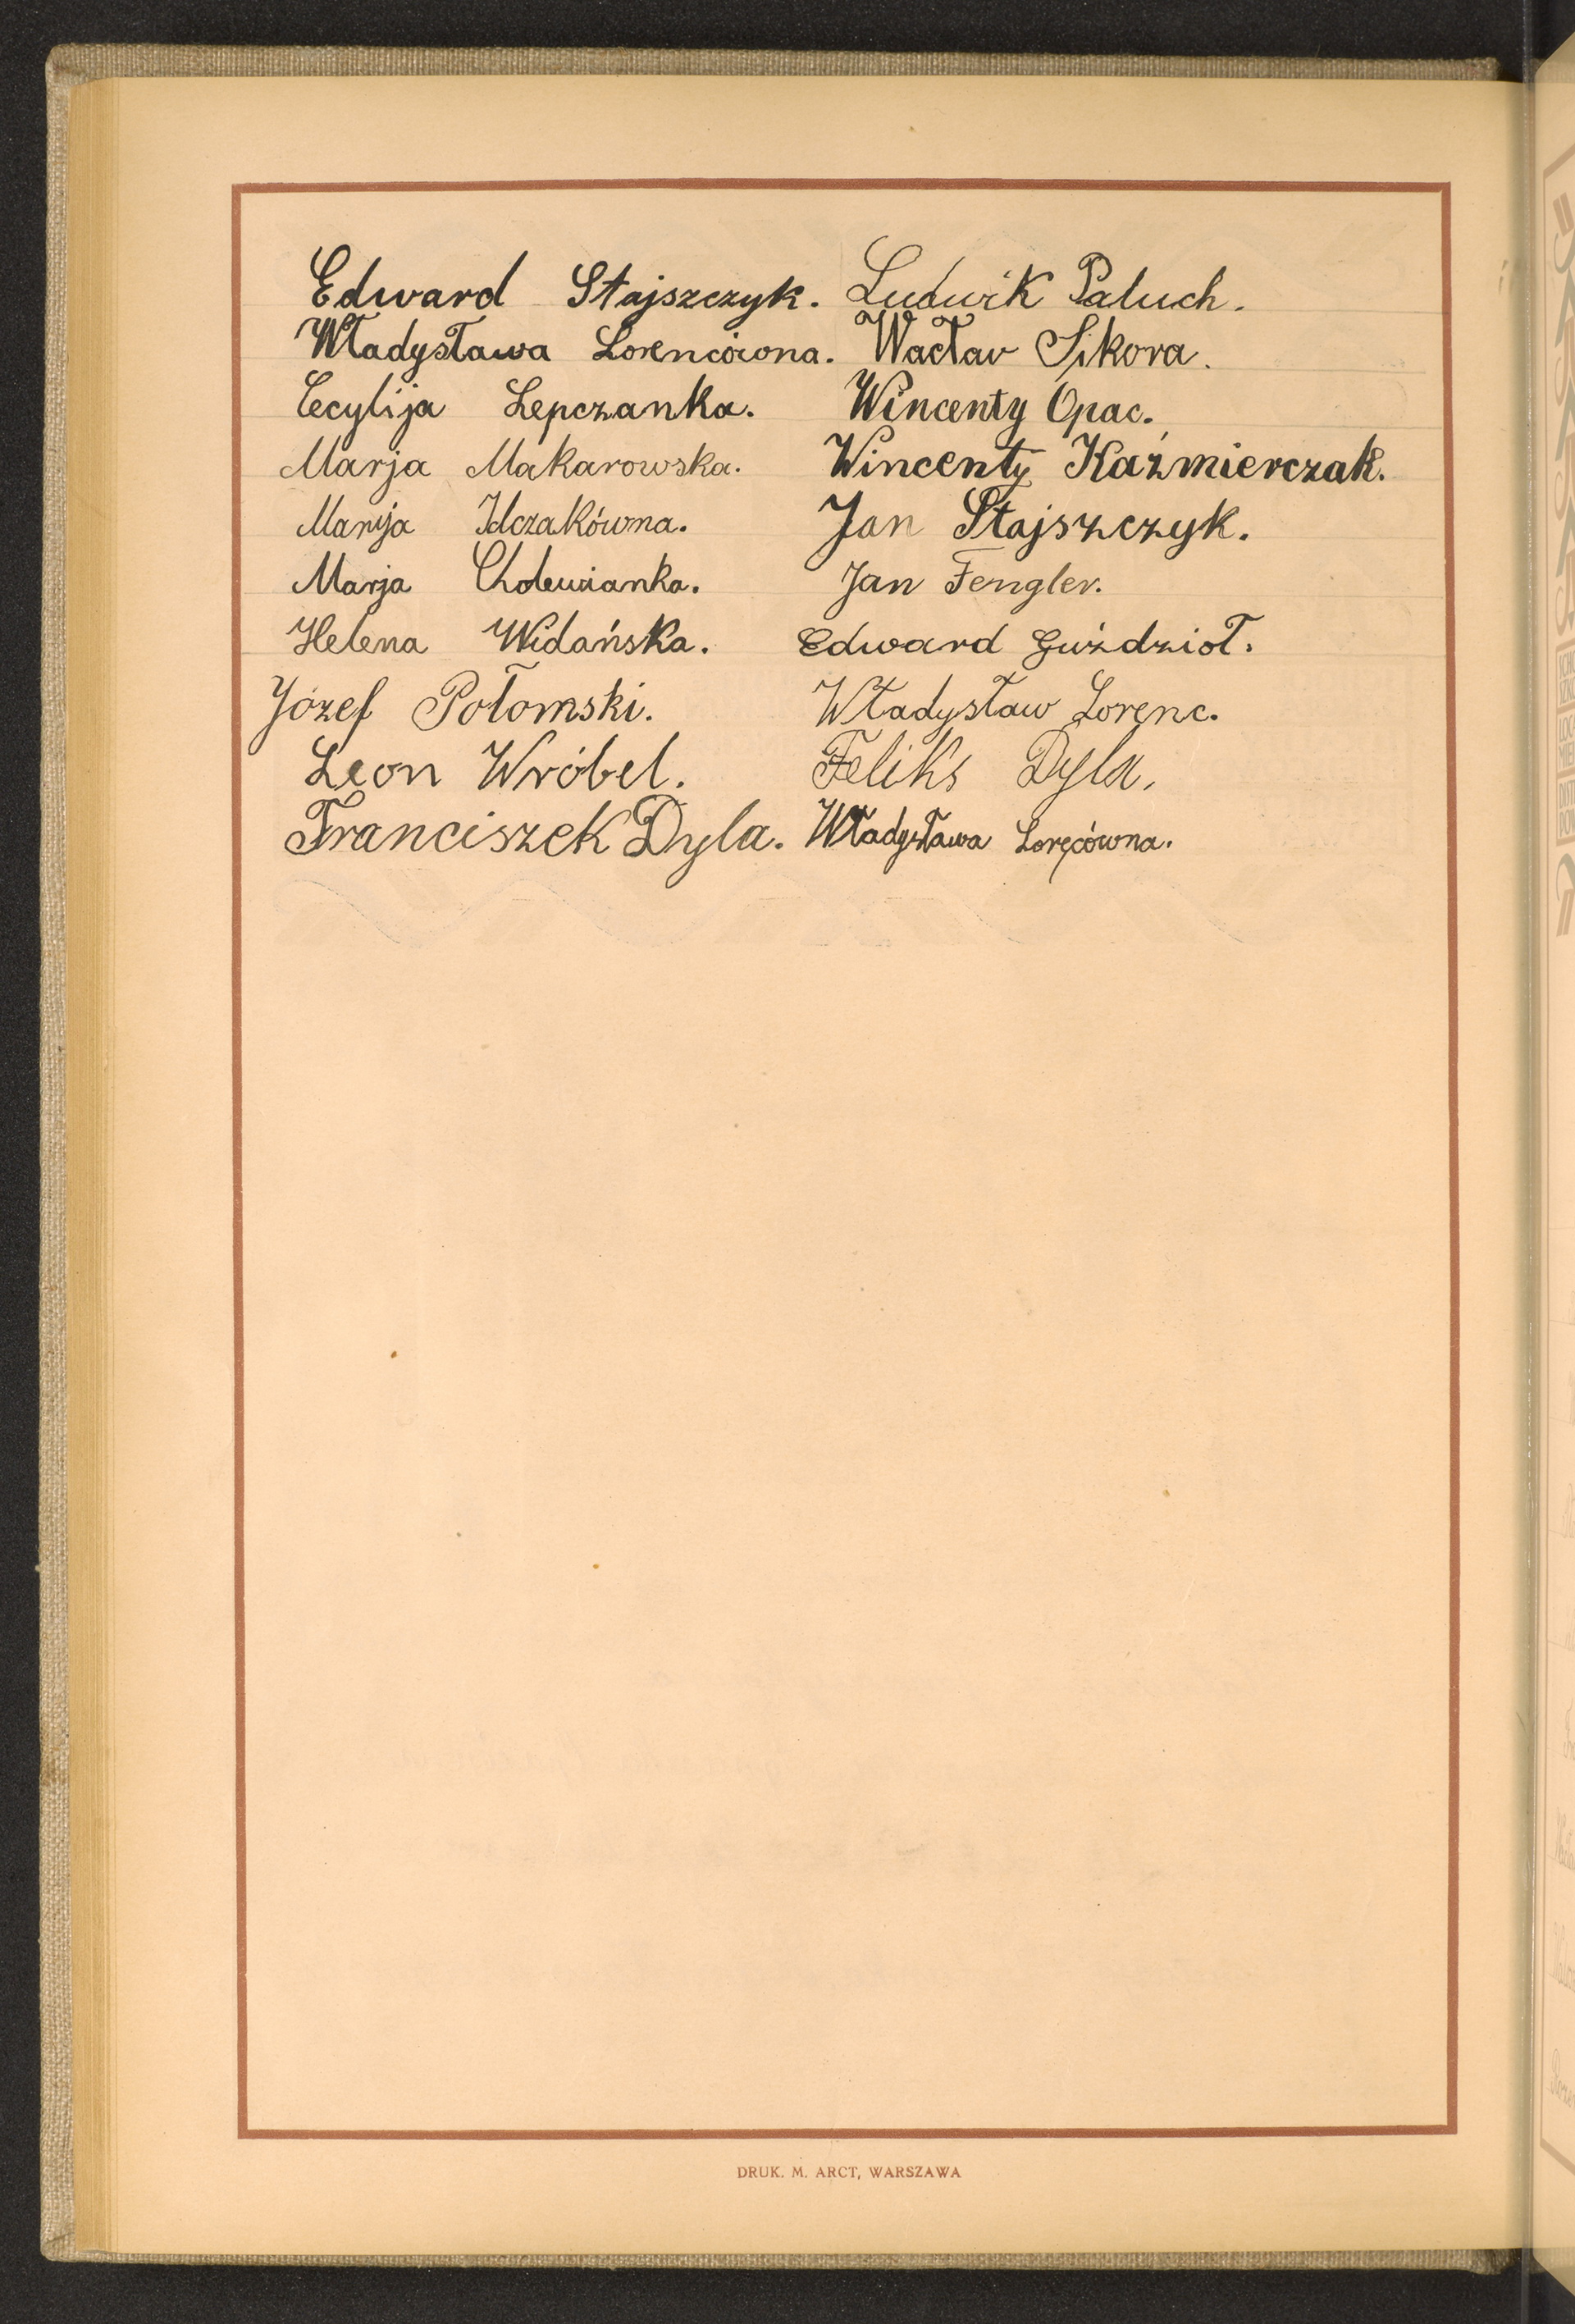 Edward Stajszczyk. Ludwik Paluch.
Władysława Lorencówna. Wacław Sikora.
Cecylija Lepczanka. Wincenty Opac.
Marja Makarowska. Wincenty Kaźmierczak.
Maryja Idczakówna. Jan Stajszczyk.
Marja Jan Fengler.
Helena Widańska. Edward Guździoł.
Józef Połomski. Władysław Lorenc.
Leon Wróbel. Feliks Dyla.
Franciszek Dyla. Władysława Loręcówna.
DRUK. M. ARCT, WARSZAWA